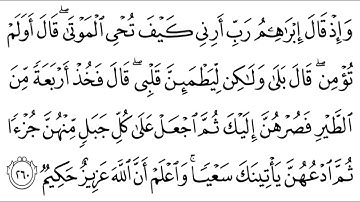 وَإِذۡ قَالَ إِبۡرَٰهِـۧمُ رَبِّ أَرِنِي كَيۡفَ تُحۡيِ ٱلۡمَوۡتَىٰۖ قَالَ أَوَلَمۡ
تُؤۡمِنۖ قَالَ بَلَىٰ وَلَٰكِن لِّيَطۡمَئِنَّ قَلۡبِيۖ قَالَ فَخُذۡ أَرۡبَعَةٗ مِّنَ
ٱلطَّيۡرِ فَصُرۡهُنَّ إِلَيۡكَ ثُمَّ ٱجۡعَلۡ عَلَىٰ كُلِّ جَبَلٖ مِّنۡهُنَّ جُزۡءٗا
ثُمَّ ٱدۡعُهُنَّ يَأۡتِينَكَ سَعۡيٗاۚ وَٱعۡلَمۡ أَنَّ ٱللَّهَ عَزِيزٌ حَكِيمٞ ٢٦٠